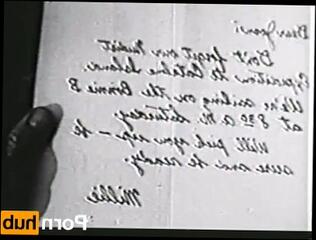 Dear Joani
Don't forget our Nudist
Expedition to Catalina Island.
We're sailing on the Bonnie B
at 8 30 A.M. Saturday.
Will pick you up - be
sure and be ready.
Millie
Porn hub